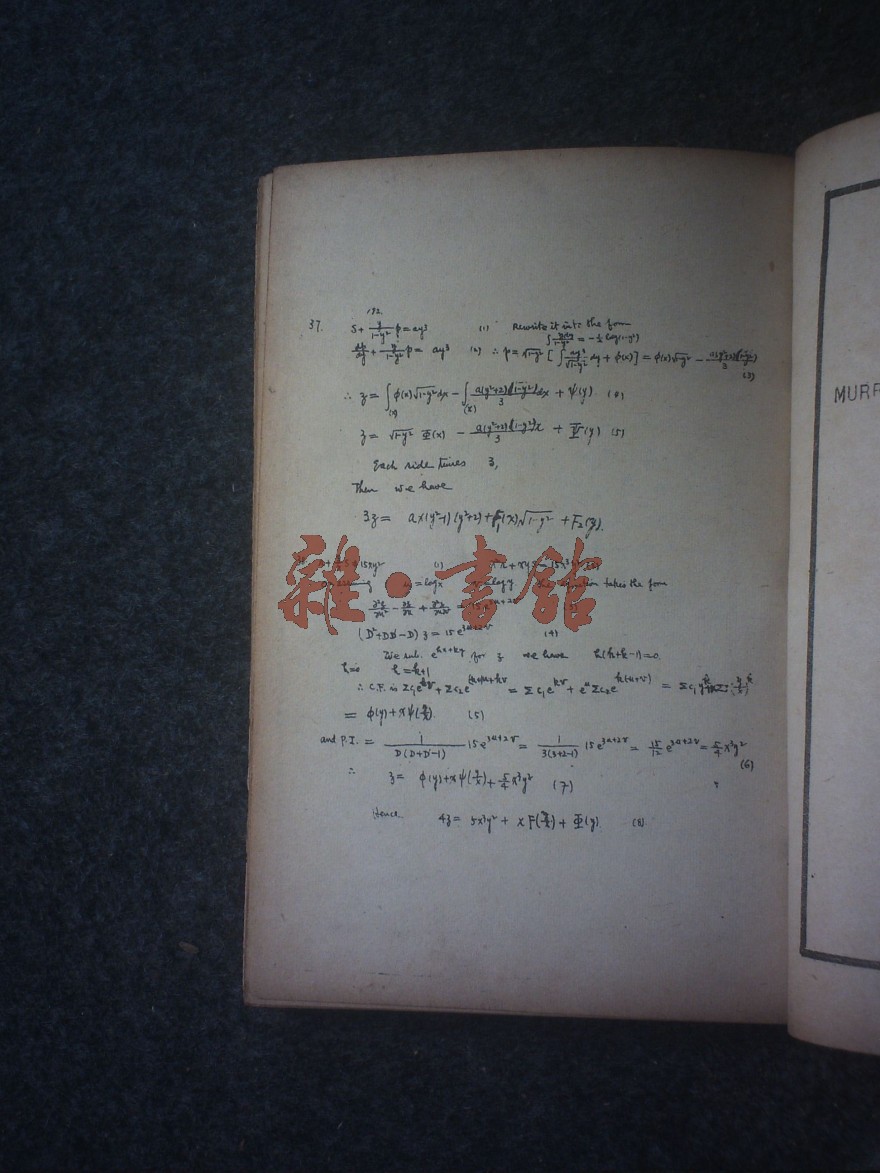 192.
37. s + y/(1-y²) p = ay³ (1) Rewrite it into the form
∫ydy/(1-y²) = -½ log(1-y²)
∂p/∂y + y/(1-y²) p = ay³ (2) ∴ p = √(1-y²) [∫ ay³/√(1-y²) dy + φ(x)] = φ(x)√(1-y²) - a(y²+2)(1-y²)/3
(3)
∴ z = ∫(x) φ(x)√(1-y²) dx - ∫(x) a(y²+2)(1-y²)/3 dx + ψ(y) (4)
z = √(1-y²) Φ(x) - a(y²+2)(1-y²)x/3 + Ψ(y) (5)
Each side times 3,
Then we have
3z = ax(y²-1)(y²+2) + F₁(x)√(1-y²) + F₂(y).
雜·書館
15xy² (1)
= log x = log y equation takes the form
(D²+DD'-D) z = 15e^(3u+2v) (4)
We sub. for z we have h(h+k-1)=0.
h=0
∴ C.F. is
= φ(y) + xψ(y/x). (5)
and P.I. = 1/(D(D+D'-1)) 15e^(3u+2v) = 1/(3(3+2-1)) 15e^(3u+2v) = 15/12 e^(3u+2v) = 5/4 x³y²
(6)
∴ z = φ(y) + xψ(y/x) + 5/4 x³y² (7)
Hence 4z = 5x³y² + xF(y/x) + Φ(y) (8)
MURR